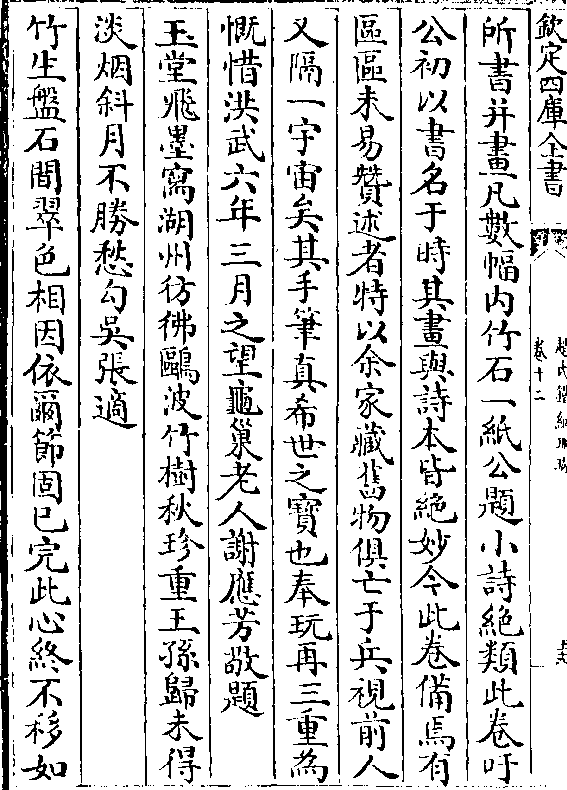 欽定四庫全書
趙氏鐵網珊瑚
卷十二
所書并畫凡數幅内竹石一紙公題小詩絶類此卷吁
公初以書名于時其畫與詩本皆絶妙今此卷備焉有
區區未易贊述者特以余家藏舊物俱亡于兵視前人
又隔一宇宙矣其手筆真希世之寶也奉玩再三重為
慨惜洪武六年三月之望龜巢老人謝應芳敬題
玉堂飛墨寫湖州彷彿鷗波竹樹秋珍重王孫歸未得
淡烟斜月不勝愁勾吳張適
竹生盤石間翠色相因依爾節固已完此心終不移如